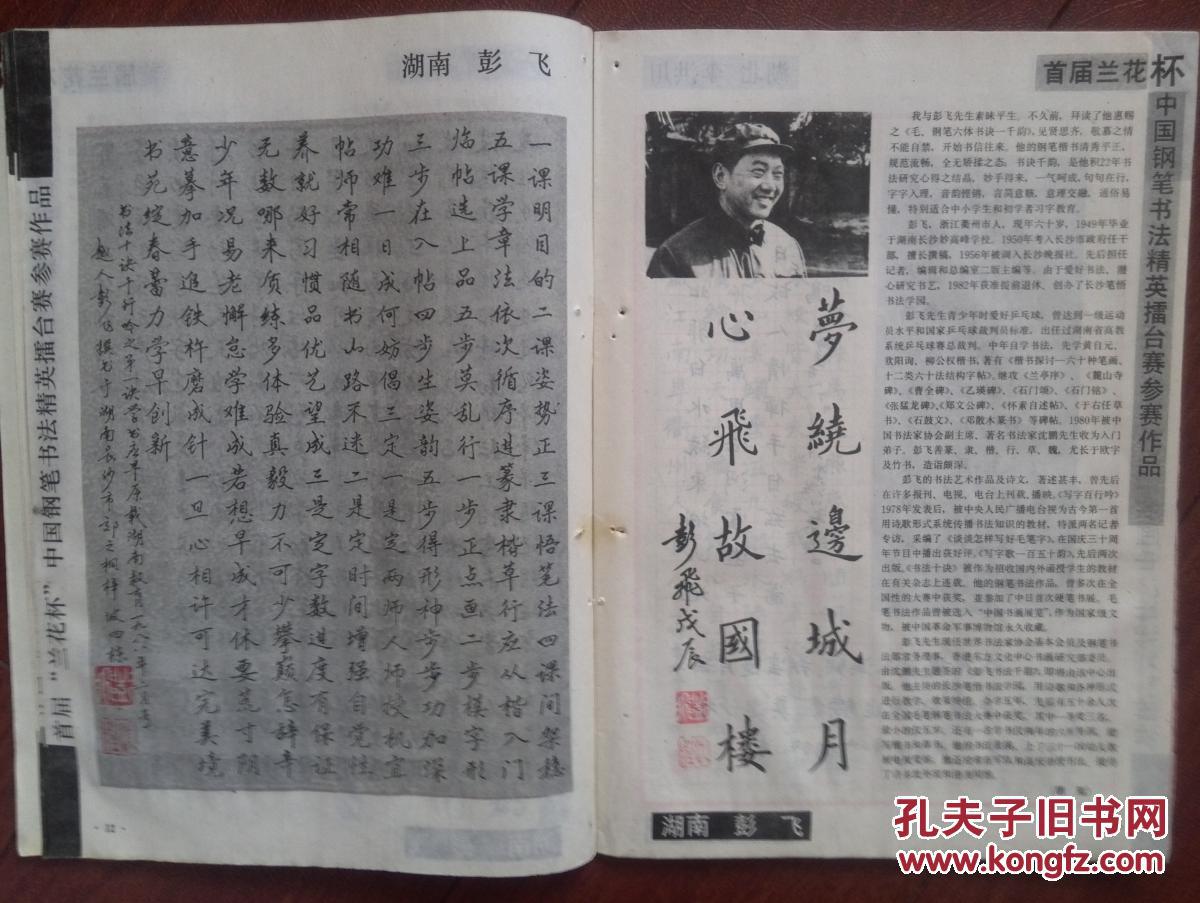 首届“兰花杯”中国钢笔书法精英擂台赛参赛作品
湖南 彭飞
一课明目的二课姿势正三课悟笔法四课间架稳
五课学章法依次循序进篆隶楷草行应从楷入门
临帖选上品五步莫乱行一步正点画二步模字形
三步在入帖四步生姿韵五步得形神步步功加深
功难一日成何妨倡三定一是定两师人师授机宜
帖师常相随书山路不迷二是定时间增强自觉性
养就好习惯品优艺望成三是定字数进度有保证
无数哪来质练多体验真毅力不可少攀巅怎辞辛
少年况易老懈怠学难成若想早成才休要荒寸阴
意摹加手追铁杵磨成针一旦心相许可达完美境
书苑绽春蕾力学早创新
- 32 -
首届兰花杯
中国钢笔书法精英擂台赛参赛作品
我与彭飞先生素昧平生。不久前,拜读了他惠赐
之《毛、钢笔六体书诀一千韵》,见贤思齐,敬慕之情
不能自禁,开始书信往来。他的钢笔楷书清秀平正,
规范流畅,全无矫揉之态。书诀千韵,是他积22年书
法研究心得之结晶,妙手得来,一气呵成,句句在行,
字字入理,音韵铿锵,言简意赅,意理交融,通俗易
懂,特别适合中小学生和初学者习字教育。
彭飞,浙江衢州市人,现年六十岁,1949年毕业
于湖南长沙妙高峰学校。1950年考入长沙市政府任干
部,擅长撰稿。1956年被调入长沙晚报社,先后担任
记者、编辑和总编室二版主编等。由于爱好书法,潜
心研究书艺,1982年获准提前退休,创办了长沙笔悟
书法学园。
彭飞先生青少年时爱好乒乓球,曾达到一级运动
员水平和国家乒乓球裁判员标准,出任过湖南省高教
系统乒乓球赛总裁判。中年自学书法,先学黄自元、
欧阳询、柳公权楷书,著有《楷书探讨—六十种笔画、
十二类六十法结构字帖》,继攻《兰亭序》、《麓山寺
碑》、《曹全碑》、《乙瑛碑》、《石门颂》、《石门铭》、
《张猛龙碑》、《郑文公碑》、《怀素自述帖》、《于右任草
书》、《石鼓文》、《邓散木篆书》等碑帖。1980年被中
国书法家协会副主席、著名书法家沈鹏先生收为入门
弟子。彭飞善篆、隶、楷、行、草、魏,尤长于欧字
及竹书,造诣颇深。
彭飞的书法艺术作品及诗文,著述甚丰,曾先后
在许多报刊、电视、电台上刊载、播映。《写字百行吟》
1978年发表后,被中央人民广播电台视为古今第一首
用诗歌形式系统传播书法知识的教材,特派两名记者
专访,采编了《谈谈怎样写好毛笔字》,在国庆三十周
年节目中播出获好评。《写字歌一百五十韵》,先后两次
出版。《书法十诀》被作为招收国内外函授学生的教材
在有关杂志上连载。他的钢笔书法作品,曾多次在全
国性的大赛中获奖,并参加了中日首次硬笔书展。毛
笔书法作品曾被选入“中国书画展览”,作为国家级文
物,被中国革命军事博物馆永久收藏。
夢繞邊城月
心飛故國樓
彭飛戊辰
湖南 彭 飞
孔夫子旧书网
www.kongfz.com